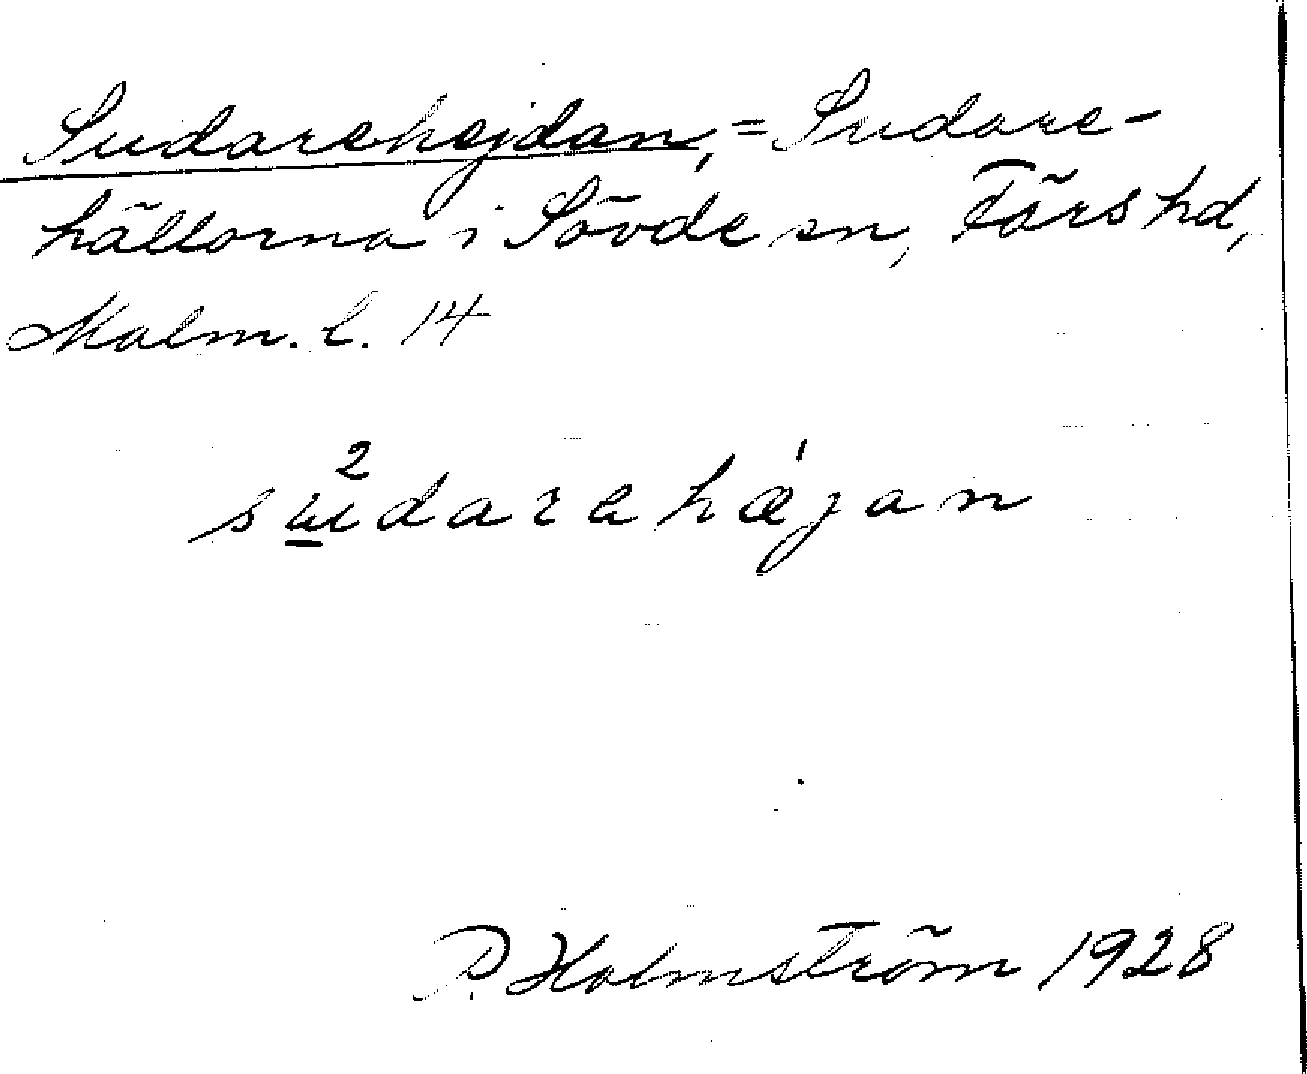 Sudarehejdan, = Sudare-
hällorna i Sövde sn, Färs hd,
Malm. l. 14
2
sudarahǽjan
P. Holmström 1928